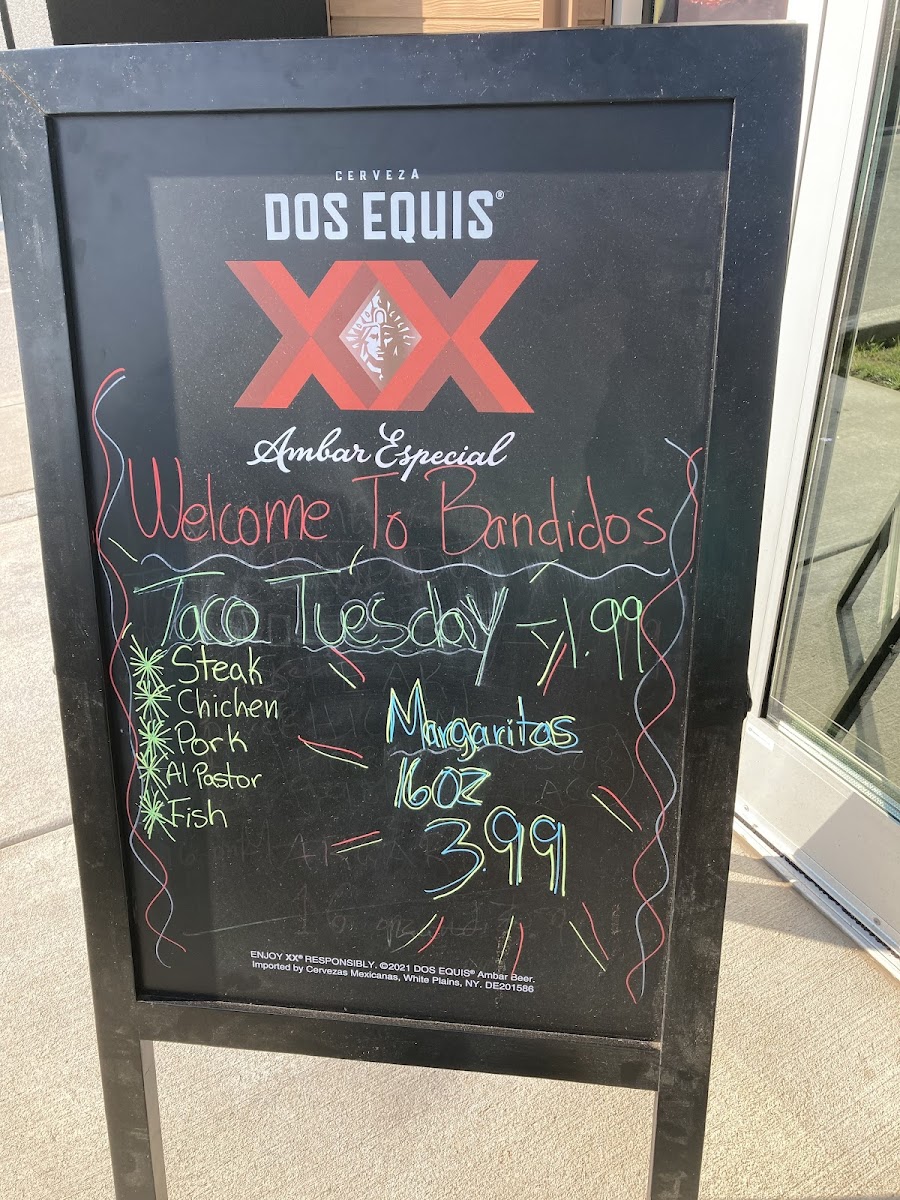 CERVEZA
DOS EQUIS®
XX
Ambar Especial
Welcome To Bandidos
Taco Tuesday - 1.99
Steak
Chichen
Pork
Al Pastor
Fish
Margaritas
16oz
3.99
ENJOY XX® RESPONSIBLY. ©2021 DOS EQUIS® Ambar Beer.
Imported by Cervezas Mexicanas, White Plains, NY. DE201586